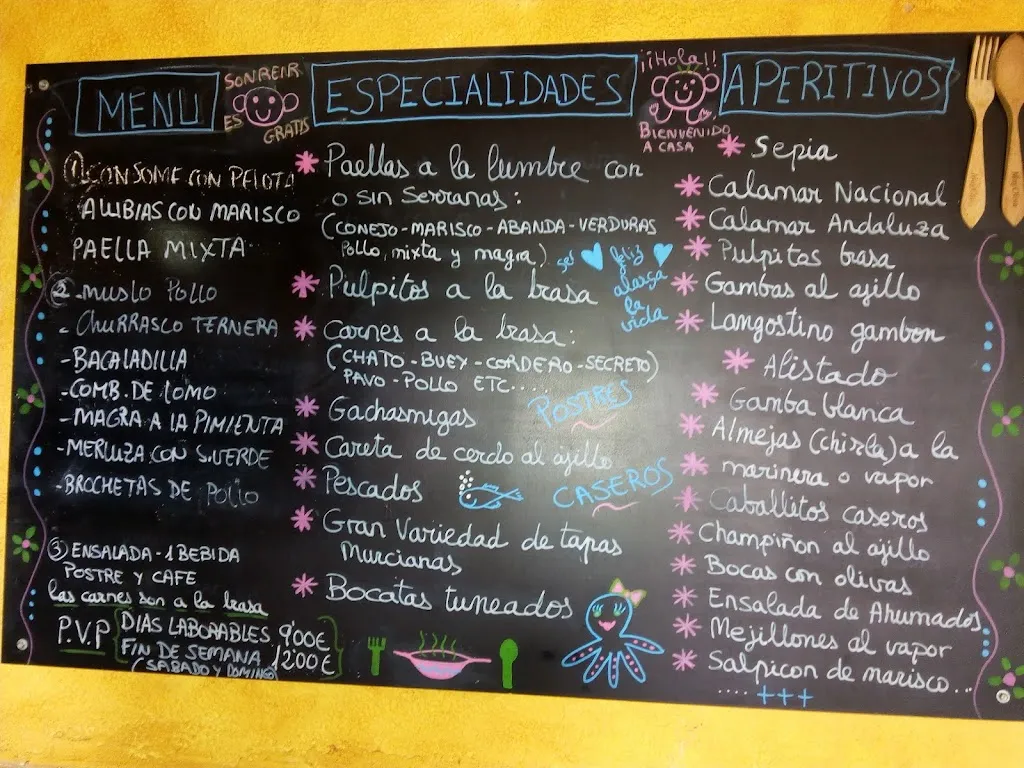 MENU
SONREIR
ES
GRATIS
① CONSOME CON PELOTA
ALUBIAS CON MARISCO
PAELLA MIXTA
2.- MUSLO POLLO
- CHURRASCO TERNERA
- BACALADILLA
- COMB. DE LOMO
- MAGRA A LA PIMIENTA
- MERLUZA CON S. VERDE
- BROCHETAS DE POLLO
③ ENSALADA - 1 BEBIDA
POSTRE Y CAFE
las carnes son a la brasa
P.V.P
DIAS LABORABLES 9'00€
FIN DE SEMANA 12'00€
(SABADO Y DOMINGO)
ESPECIALIDADES
Paellas a la lumbre con
o sin Serranas:
(CONEJO - MARISCO - ABANDA - VERDURAS
POLLO, mixta y magra)
ser feliz
alarga
la
vida
Pulpitos a la brasa
Carnes a la brasa:
(CHATO - BUEY - CORDERO - SECRETO)
PAVO - POLLO ETC....
POSTRES
CASEROS
Gachasmigas
Careta de cerdo al ajillo
Pescados
Gran Variedad de tapas
Murcianas
Bocatas tuneados
¡¡Hola!!
BIENVENIDO
A CASA
APERITIVOS
Sepia
Calamar Nacional
Calamar Andaluza
Pulpitos brasa
Gambas al ajillo
Langostino gambon
Alistado
Gamba blanca
Almejas (chirla) a la
marinera o vapor
Caballitos caseros
Champiñon al ajillo
Bocas con olivas
Ensalada de Ahumados
Mejillones al vapor
Salpicon de marisco...
.... +++